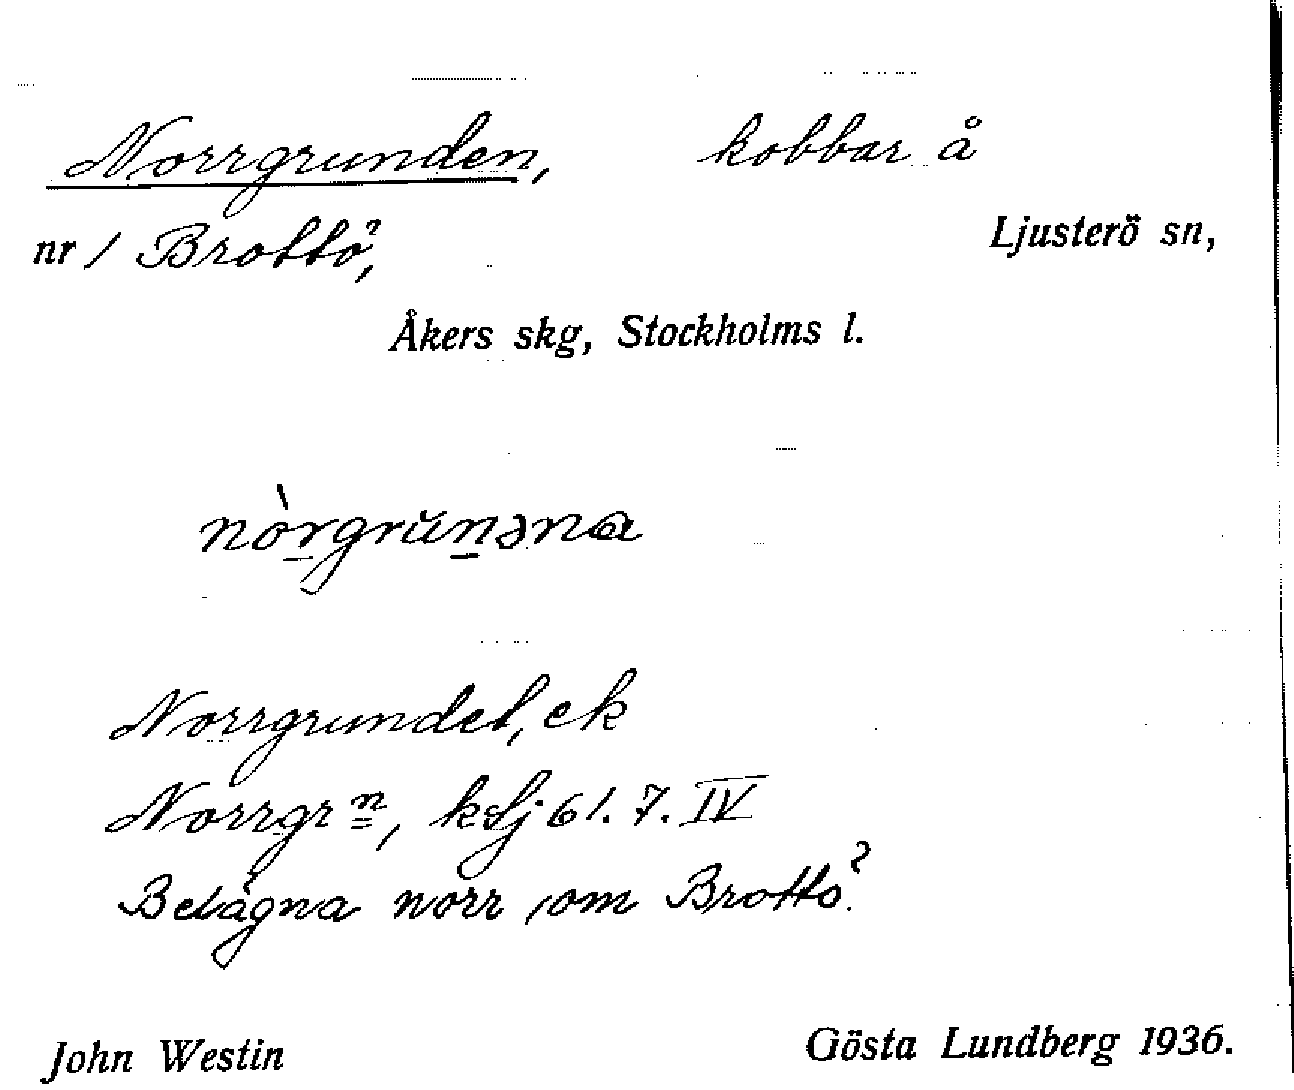 Norrgrunden, kobbar å
nr / Brottö, Ljusterö sn,
Åkers skg, Stockholms l.
nòrgrŭnəna
Norrgrundet, ek
Norrgrn, kslj 61. 7. IV
Belägna norr om Brottö.
John Westin Gösta Lundberg 1936.